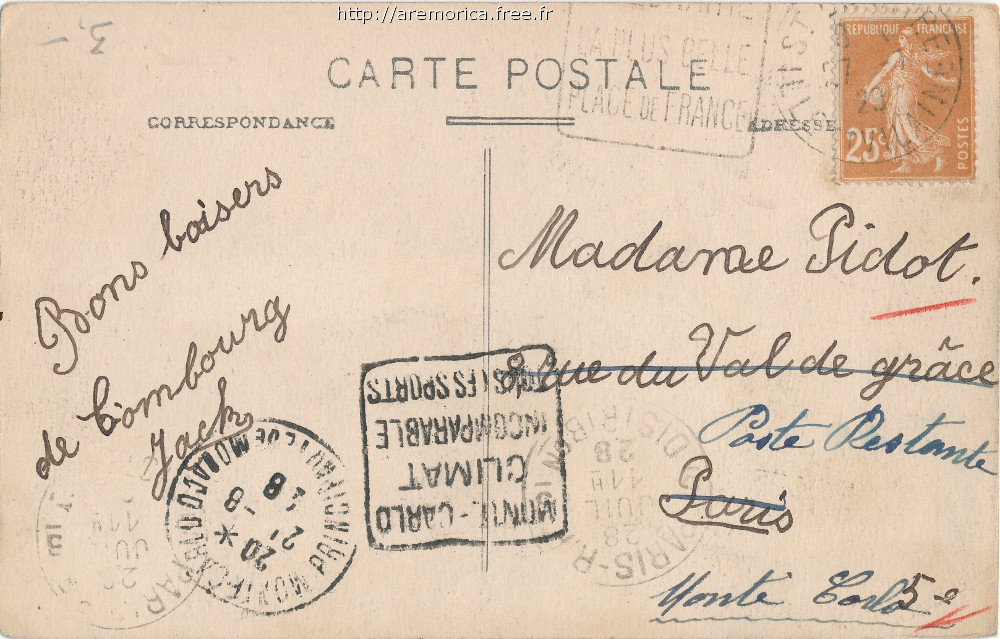 http://aremorica.free.fr
3,-
CARTE POSTALE
LA PLUS BELLE
PLAGE DE FRANCE
CORRESPONDANCE
ADRESSE
REPUBLIQUE FRANCAISE
25c
POSTES
Bons baisers
de Combourg
Jack
Madame Pidot.
8 rue du Val de grâce
Poste Restante
Paris
Monte Carlo
MONTE-CARLO
CLIMAT
INCOMPARABLE
TOUS LES SPORTS
MONTE-CARLO PRINCIPAUTÉ DE MONACO
20 *
21
8
28
PARIS
DISTRIBON
28
11H
JUIL
28